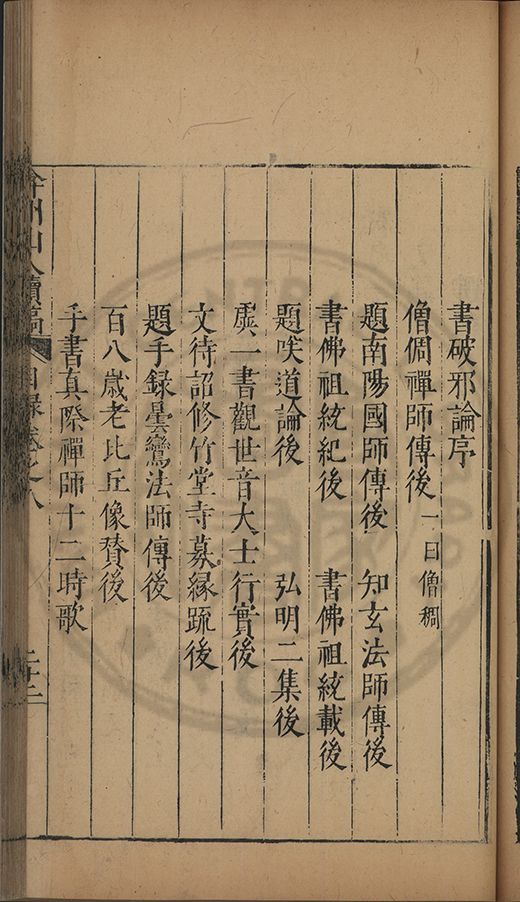 書破邪論序
僧倜禪師傳後 一曰僧稠
題南陽國師傳後 知玄法師傳後
書佛祖統紀後 書佛祖統載後
題咲道論後 弘明二集後
虞一書觀世音大士行實後
文待詔修竹堂寺募縁疏後
題手録曇鸞法師傳後
百八歲老比丘像賛後
手書真際禪師十二時歌
弇州山人續稿 目錄卷之八 二十二